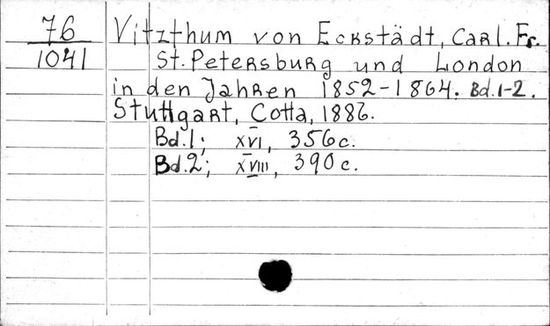 76
1041
Vitzthum von Eckstädt, Carl. Fr.
St. Petersburg und London
in den Jahren 1852-1864. Bd.1-2.
Stuttgart, Cotta, 1886.
Bd.1; XVI, 356c.
Bd.2; XVIII, 390c.